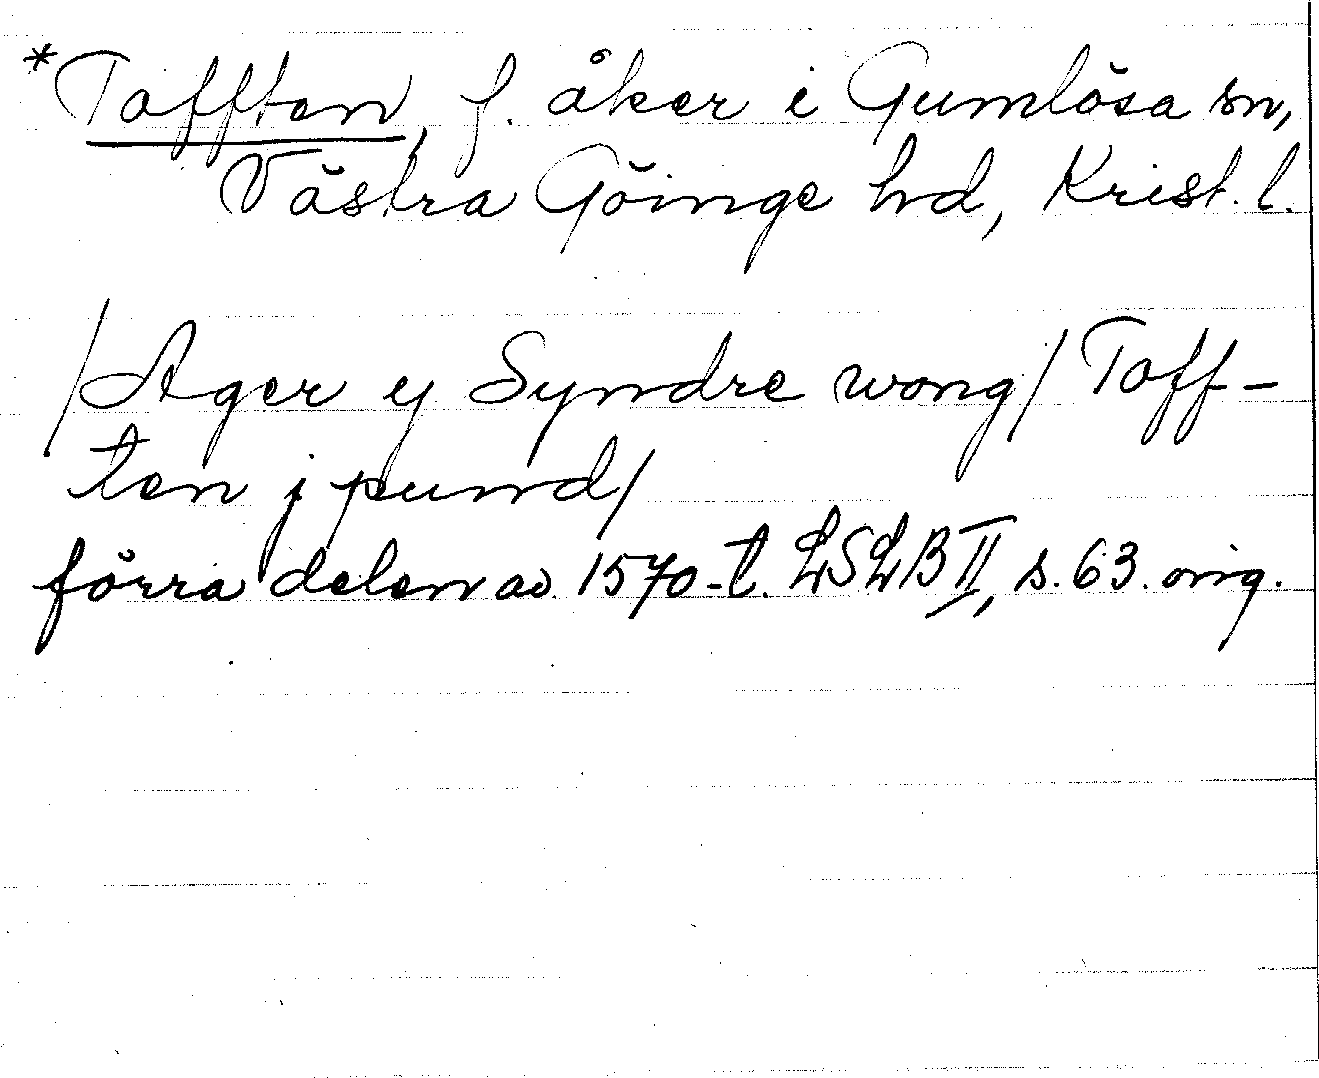 *Tofften, f. åker i Gumlösa sn,
Västra Göinge hd, Krist. l.
/Ager y Syndre wong/ Toff-
ten j pund/
förra delen av 1570-t. LSLB II, s. 63. orig.